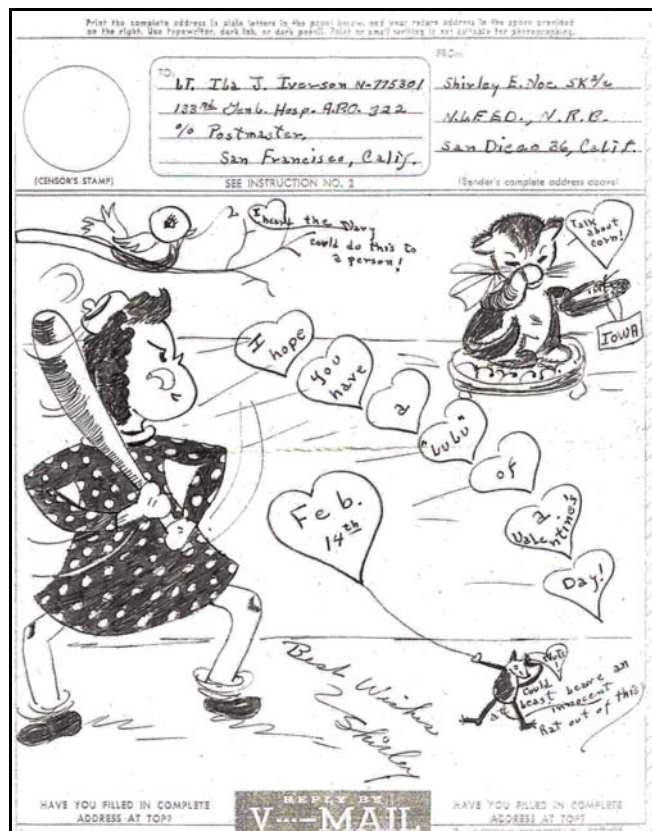 Print the complete address in plain letters in the panel below, and your return address in the space provided
on the right. Use typewriter, dark ink, or dark pencil. Faint or small writing is not suitable for photographing.
TO:
LT. Ila J. Iverson N-775301
133rd Genl. Hosp. A.P.O. 322
c/o Postmaster,
San Francisco, Calif.
FROM:
Shirley E. Noe SK 2/c
N.L.F.E.D., N.R.B.
San Diego 36, Calif.
(CENSOR'S STAMP)
SEE INSTRUCTION NO. 2
(Sender's complete address above)
I heard the Navy
could do this to
a person!
Talk
about
corn!
IOWA
I
hope
you
have
a
"LuLu"
of
a
Valentine's
Day!
Feb.
14th
Best Wishes
Shirley
Could
at least leave an
innocent
Rat out of this
HAVE YOU FILLED IN COMPLETE
ADDRESS AT TOP?
REPLY BY
V···—MAIL
HAVE YOU FILLED IN COMPLETE
ADDRESS AT TOP?